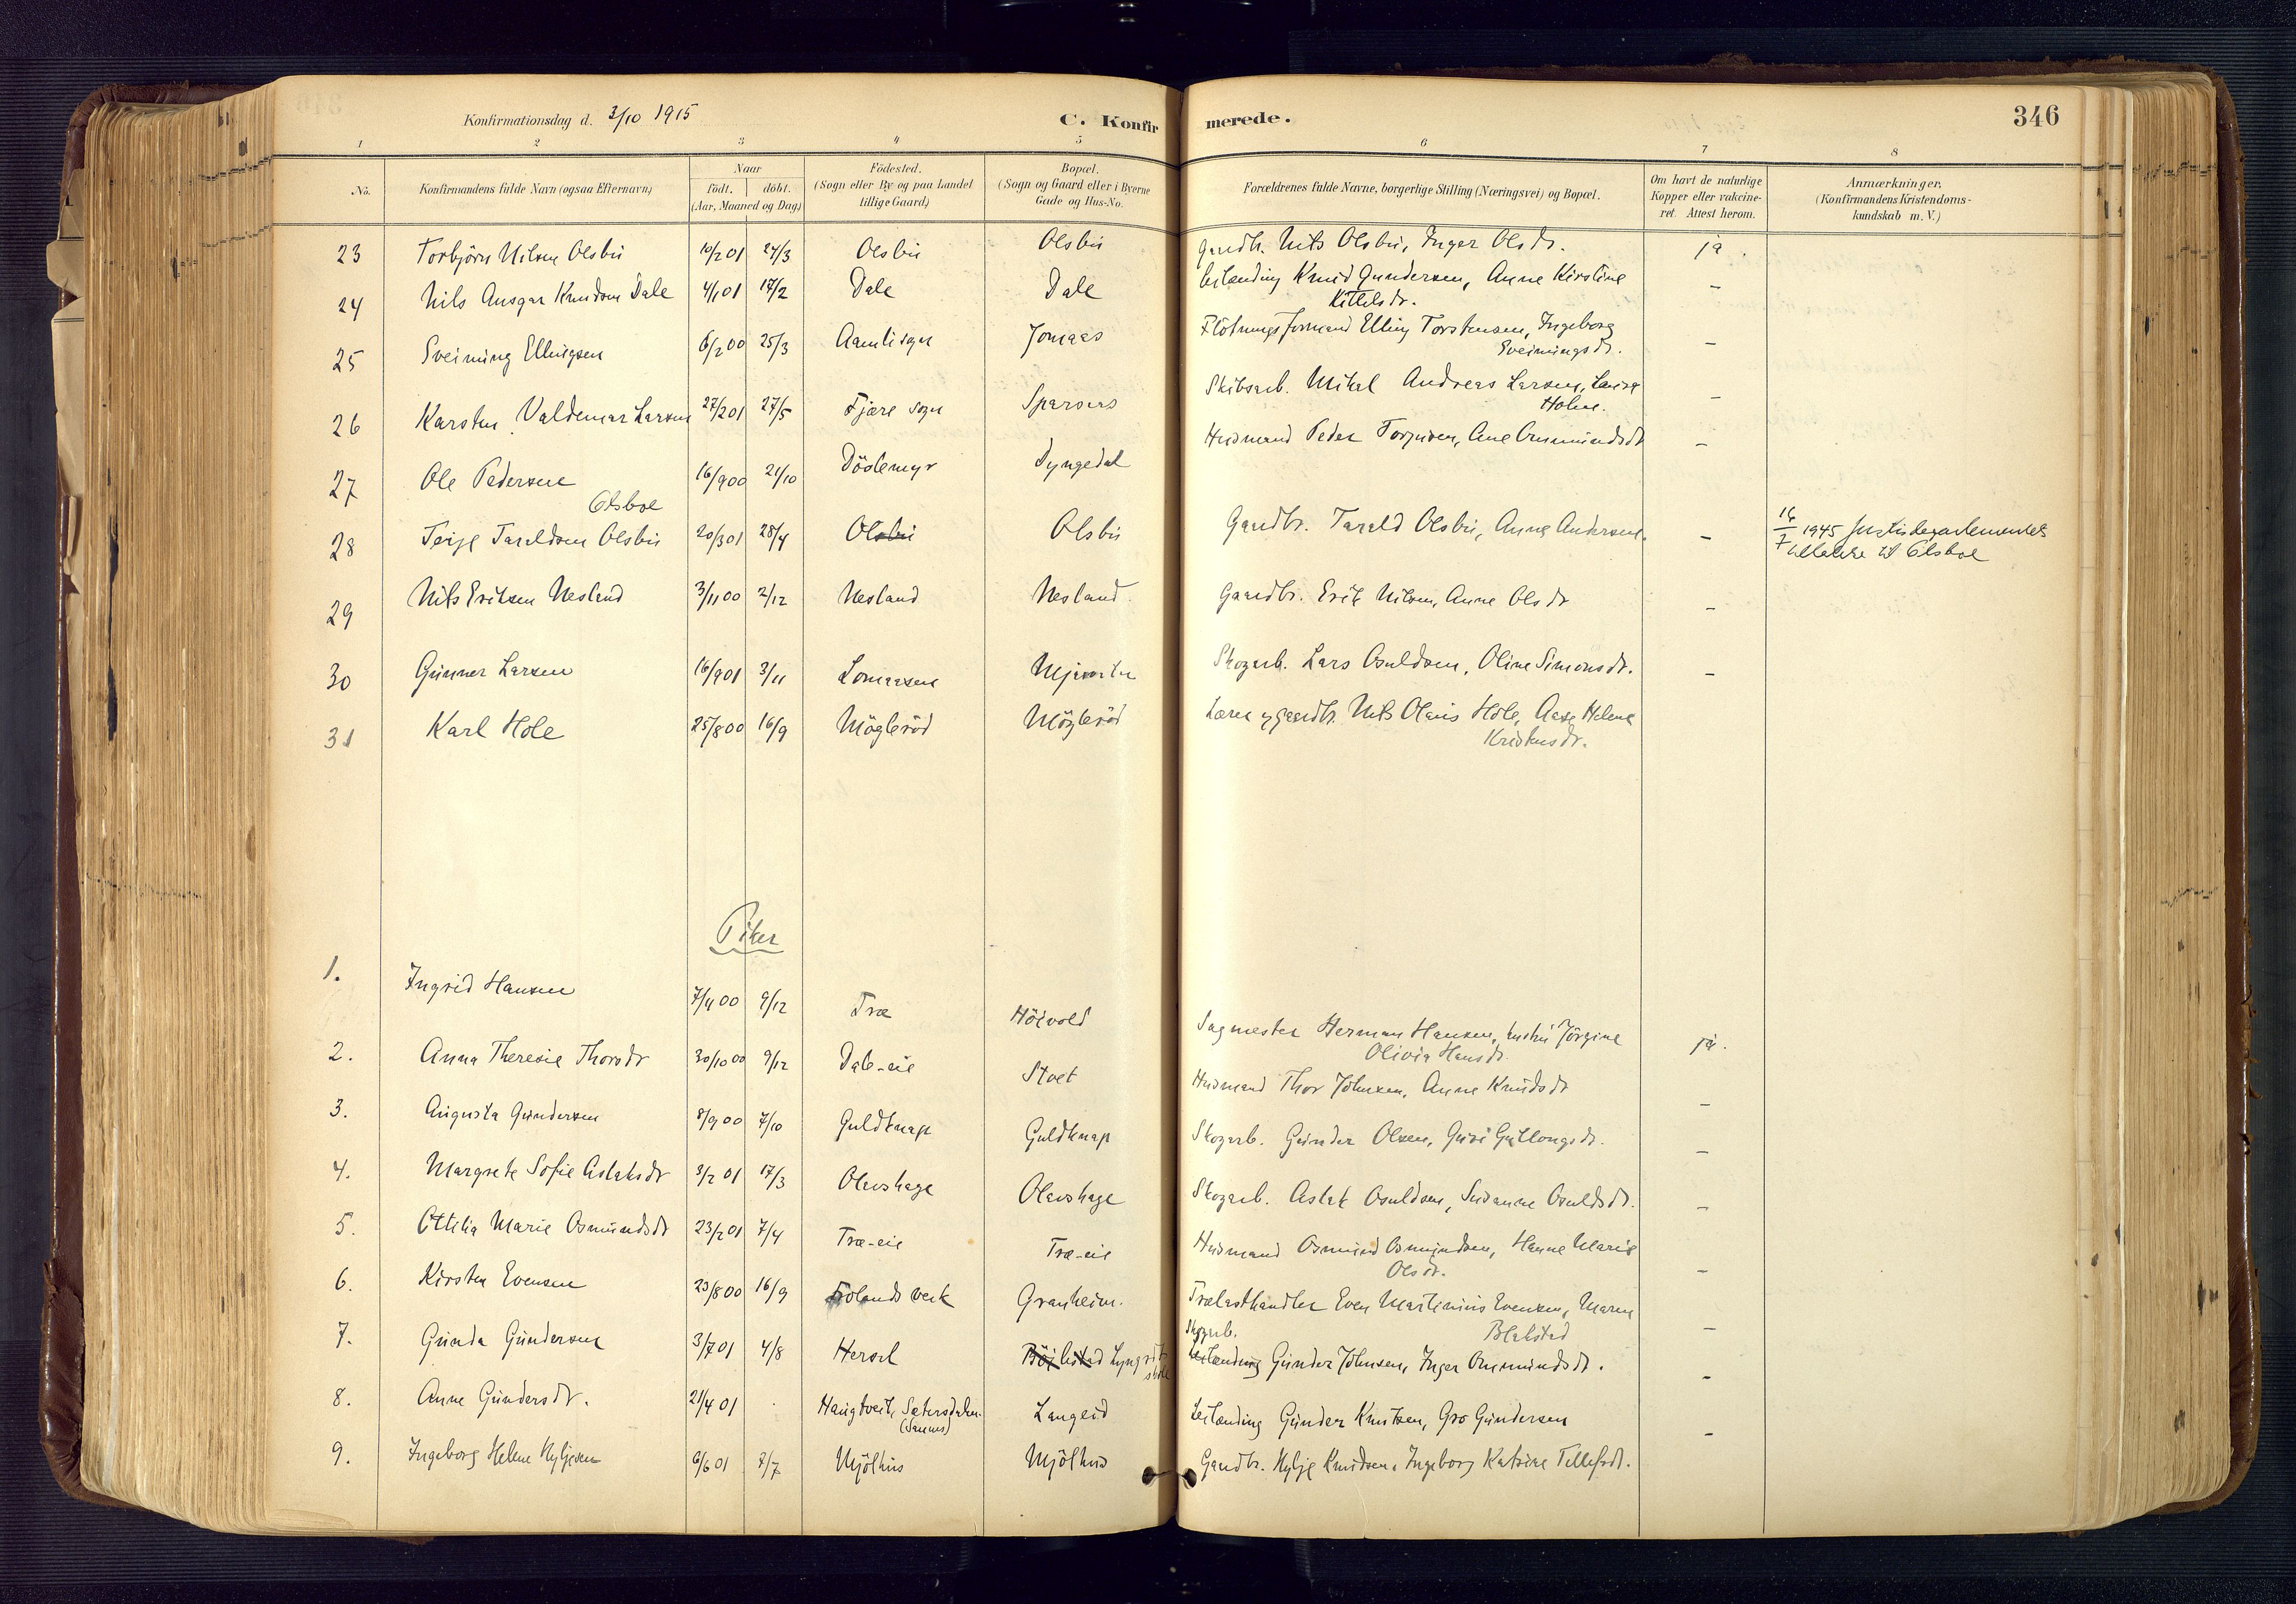 Konfirmationsdag d. 3/10 1915
C. Konfirmerede.
346
1 2 3 4 5 6 7 8
No.
Konfirmandens fulde Navn (ogsaa Efternavn)
Naar
födt. döbt.
(Aar, Maaned og Dag)
Födested.
(Sogn eller By og paa Landet
tillige Gaard)
Bopæl.
(Sogn og Gaard eller i Byerne
Gade og Hus-No.
Forældrenes fulde Navne, borgerlige Stilling (Næringsvei) og Bopæl.
Om havt de naturlige
Kopper eller vakcine-
ret. Attest herom.
Anmærkninger.
(Konfirmandens Kristendoms-
kundskab m. V.)
23 Torbjörn Nilsen Olsbu 10/2 01 24/3 Olsbu Olsbu Gaardbr. Nils Olsbu, Inger Olsdr. ja
24 Nils Ansgar Knudsen Dale 4/1 01 17/2 Dale Dale Leilending Knud Gundersen, Anne Kirstine
Kittelsdr. -
25 Sveinung Ellingsen 6/2 00 25/3 Aamli sogn Jomaas Flötningsformand Elling Torstensen, Ingeborg
Sveinungsdr. -
26 Karsten Valdemar Larsen 27/2 01 27/5 Fjære sogn Sparsaas Skibsarb. Mikal Andreas Larsen, Laura
Holm. -
27 Ole Pedersen 16/9 00 21/10 Döslemyr Dyngedal Husmand Peder Torjusen, Ane Omundsdr -
Olsboe
28 Terje Taraldsen Olsbu 20/3 01 28/4 Olsbu Olsbu Gaardbr. Tarald Olsbu, Anne Andersen. - 16/7 1945 Justisdepartementets
tillatelse til Olsboe
29 Nils Eriksen Nesland 3/11 00 2/12 Nesland Nesland. Gaardbr. Erik Nilsen, Anne Olsdr -
30 Gunner Larsen 16/9 01 3/11 Lomaasen Skogarb. Lars Osuldsen, Oline Simonsdr. -
31 Karl Hole 25/8 00 16/9 Mögleröd Mögleröd Lærer og gaardbr. Nils Olaus Hole, Aase Helene
Kristensdr.
Piker
1. Ingrid Hansen 7/4 00 9/12 Træ Höivold Sagmester Herman Hansen, hustru Jörgine
Olivia Hansdr. ja.
2. Anna Theresie Thorsdr 30/10 00 9/12 Dale-eie Stoet Husmand Thor Johnsen, Anne Knudsdr -
3. Augusta Gundersen 8/9 00 7/10 Guldknap Guldknap Skogarb. Gunder Olsen, Guri Gullougsdr. -
4. Margrete Sofie Aslaksdr 3/2 01 17/3 Olavshage Olavshage Skogarb. Aslak Osuldsen, Susanne Osuldsdr. -
5. Ottilia Marie Osmundsdr 23/2 01 7/4 Træ-eie Træ-eie Husmand Osmund Osmundsen, Hanne Marie
Olsdr. -
6. Kirsten Evensen 23/8 00 16/9 Frolands verk Granheim. Trælasthandler Even Martinius Evensen, Maren
Blakstad -
7. Gunda Gundersen 3/7 01 4/8 Hersel Skogarb.
Leilending Gunder Johnsen, Inger Omundsdr. -
8. Anne Gundersdr. 21/4 01 Haugtveit, Sætersdalen. Langeid Leilending Gunder Knutsen, Gro Gundersen -
9. Ingeborg Helene Nyljesen 6/6 01 7/7 Mjölhus Mjölhus Gaardbr. Nylje Knudsen, Ingeborg Katrine Tellefsdr.